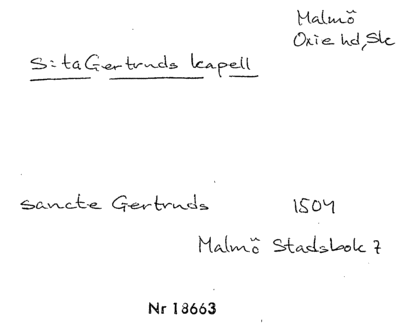 Malmö
Oxie hd, Sk
S:ta Gertruds kapell
sancte Gertruds 1504
Malmö Stadsbok 7
Nr 18663